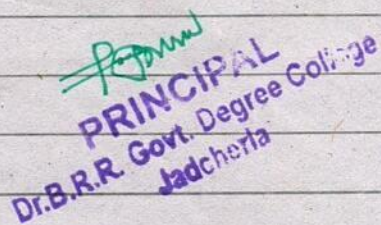 PRINCIPAL
Dr.B.R.R. Govt. Degree College
Jadcherla